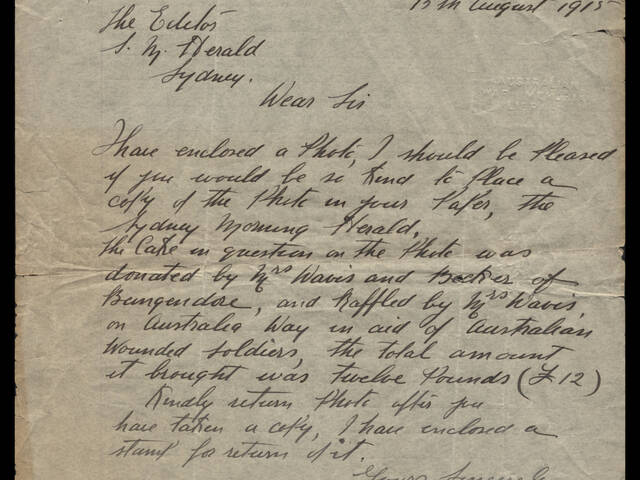 15th August 1915
The Editor
S. M. Herald
Sydney.
Dear Sir
I have enclosed a Photo, I should be Pleased
if you would be so kind to Place a
copy of the Photo in your Paper, the
Sydney Morning Herald,
the Cake in question on the Photo was
donated by Mrs Davis and Booker of
Bungendore, and Raffled by Mrs Davis,
on Australia Day in aid of Australian
Wounded soldiers, the total amount
it brought was twelve Pounds (£12)
Kindly return Photo after you
have taken a copy, I have enclosed a
stamp for return of it.
Yours Sincerely